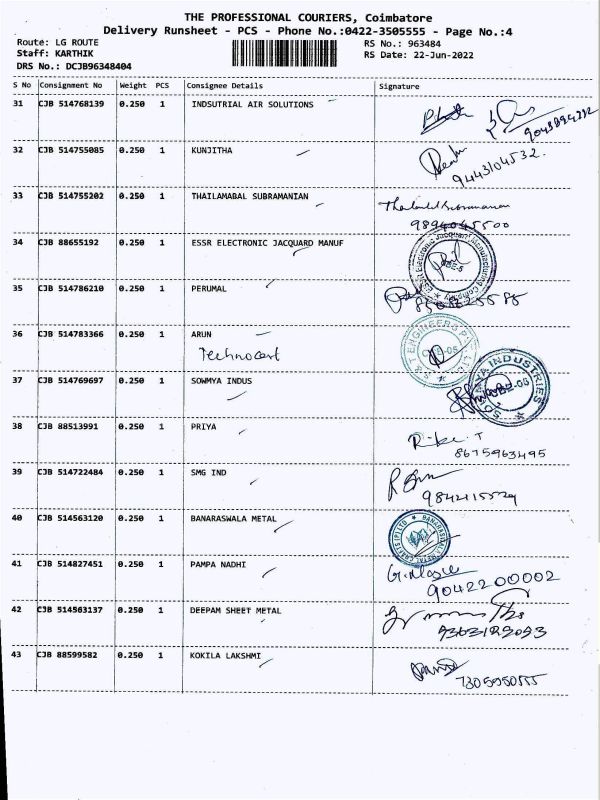 THE PROFESSIONAL COURIERS, Coimbatore
Delivery Runsheet - PCS - Phone No.:0422-3505555 - Page No.:4
Route: LG ROUTE RS No.: 963484
Staff: KARTHIK RS Date: 22-Jun-2022
DRS No.: DCJB96348404
S No Consignment No Weight PCS Consignee Details Signature
31 CJB 514768139 0.250 1 INDSUTRIAL AIR SOLUTIONS
32 CJB 514755085 0.250 1 KUNJITHA
9443104532.
33 CJB 514755202 0.250 1 THAILAMABAL SUBRAMANIAN
9894045500
34 CJB 88655192 0.250 1 ESSR ELECTRONIC JACQUARD MANUF
35 CJB 514786210 0.250 1 PERUMAL
36 CJB 514783366 0.250 1 ARUN
37 CJB 514769697 0.250 1 SOWMYA INDUS
SOWMYA INDUSTRIES
38 CJB 88513991 0.250 1 PRIYA
8675963495
39 CJB 514722484 0.250 1 SMG IND
40 CJB 514563120 0.250 1 BANARASWALA METAL
41 CJB 514827451 0.250 1 PAMPA NADHI
9042200002
42 CJB 514563137 0.250 1 DEEPAM SHEET METAL
43 CJB 88599582 0.250 1 KOKILA LAKSHMI